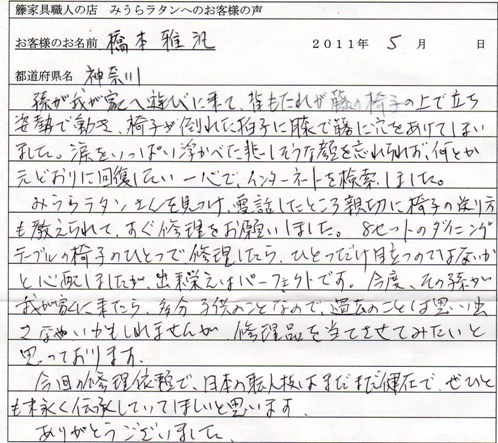 籐家具職人の店 みうらラタンへのお客様の声
お客様のお名前 橋本雅 2011年 5月 日
都道府県名 神奈川
孫が我が家へ遊びに来て、背もたれが籐の椅子の上で立ち
姿勢で動き、椅子が倒れた拍子に膝で籐に穴をあけてしまい
ました。涙をいっぱい浮かべた悲しそうな顔を忘れられず、何とか
元どおりに回復したい一心で、インターネットを検索しました。
みうらラタンさんを見つけ、電話したところ親切に椅子の送り方
も教えられて、すぐ修理をお願いしました。8セットのダイニング
テーブルの椅子のひとつで修理したら、ひとつだけ目立つのではないか
と心配しましたが、出来栄えはパーフェクトです。今度、その孫が
我が家に来たら、多分子供のことなので、過去のことは思い出
さないかもしれませんが、修理品を当てさせてみたいと
思っております。
今回の修理依頼で、日本の職人技はまだまだ健在で、ぜひと
も末永く伝承していてほしいと思います。
ありがとうございました。